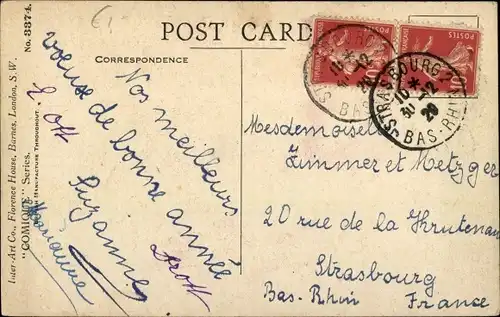 POST CARD
No. 3374.
CORRESPONDENCE
Inter-Art Co., Florence House, Barnes, London, S.W.
"COMIQUE" Series.
BRITISH MANUFACTURE THROUGHOUT.
Nos meilleurs
voeux de bonne année
Suzanne
E Ott
Marianne
POSTES
POSTES
STRASBOURG
10 *
30 12
26
BAS-RHIN
Mesdemoiselles
Zimmer et Metzger
20 rue de la Thrutenau
Strasbourg
Bas-Rhin France